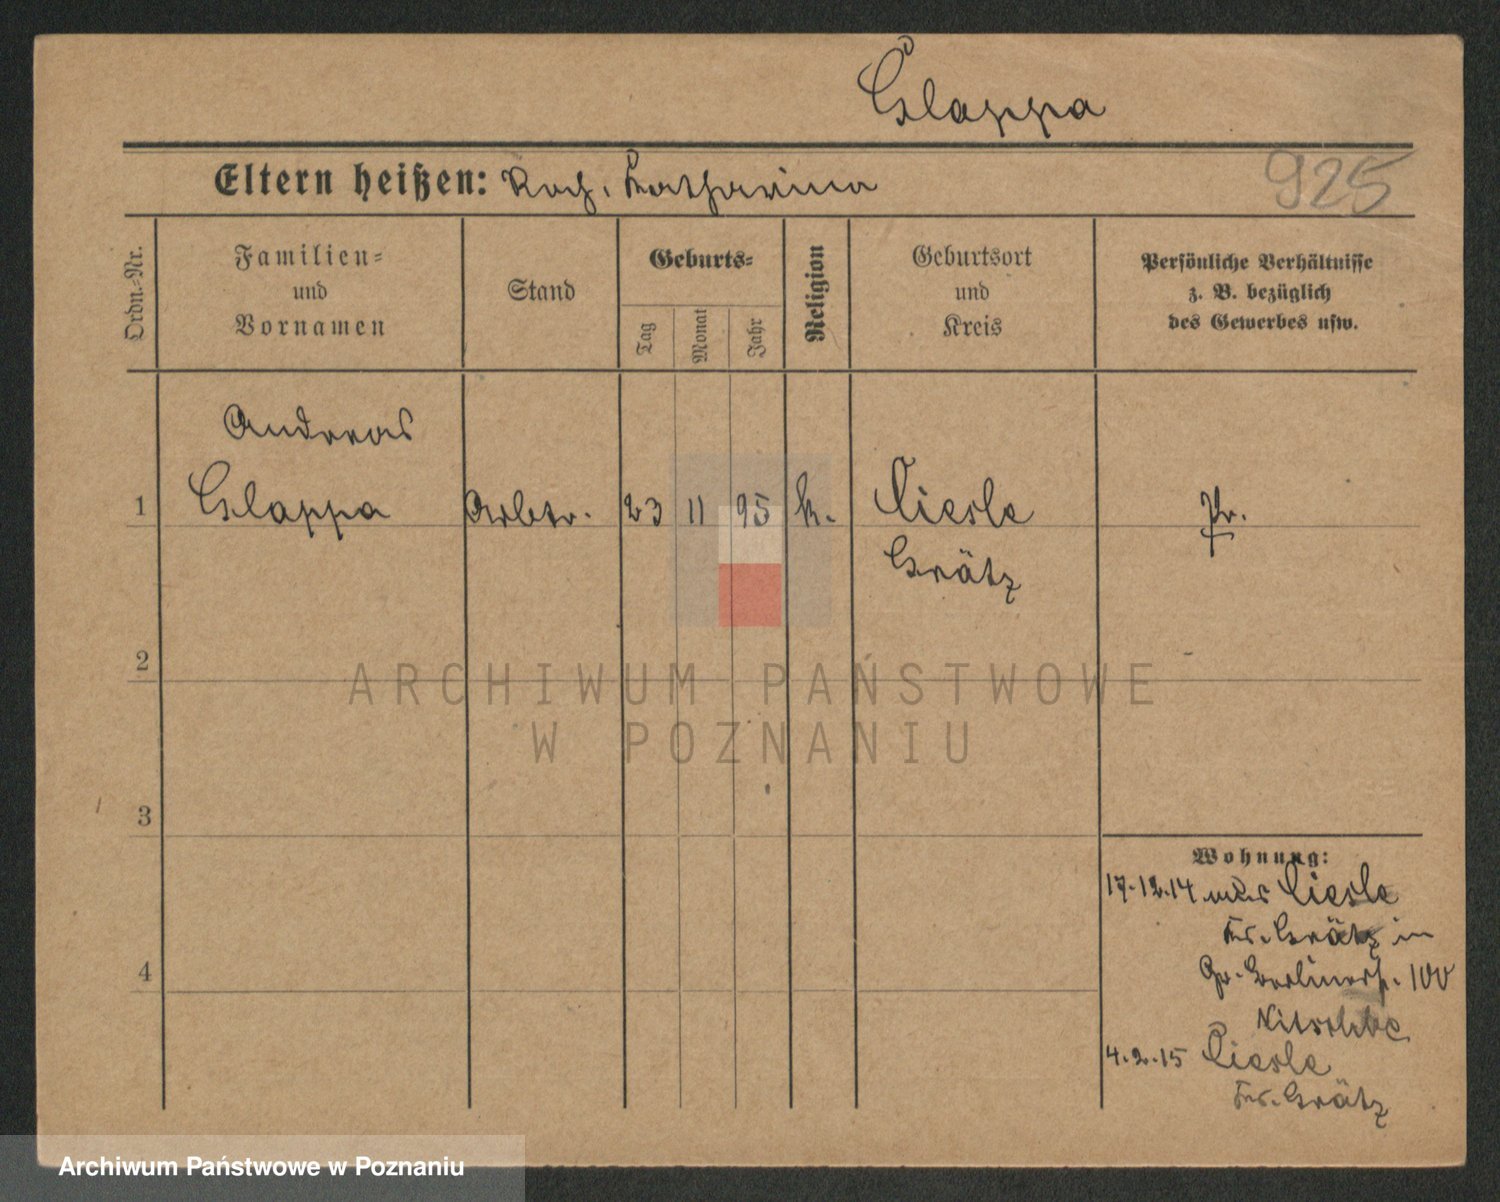 Glappa
Eltern heißen: Roch, Katharina
925
Ordn.-Nr.
Familien-
und
Vornamen
Stand
Geburts-
Tag
Monat
Jahr
Religion
Geburtsort
und
Kreis
Persönliche Verhältnisse
z. B. bezüglich
des Gewerbes usw.
Andreas
1 Glappa Arbtr. 23 11 95 k. Ciesle Pr.
Grätz
2
3
4
Wohnung:
17.12.14 aus Ciesle
Kr. Grätz in
Gr. Berlinerst. 100
Nitschke
4.2.15 Ciesle
Kr. Grätz
ARCHIWUM PAŃSTWOWE
W POZNANIU
Archiwum Państwowe w Poznaniu